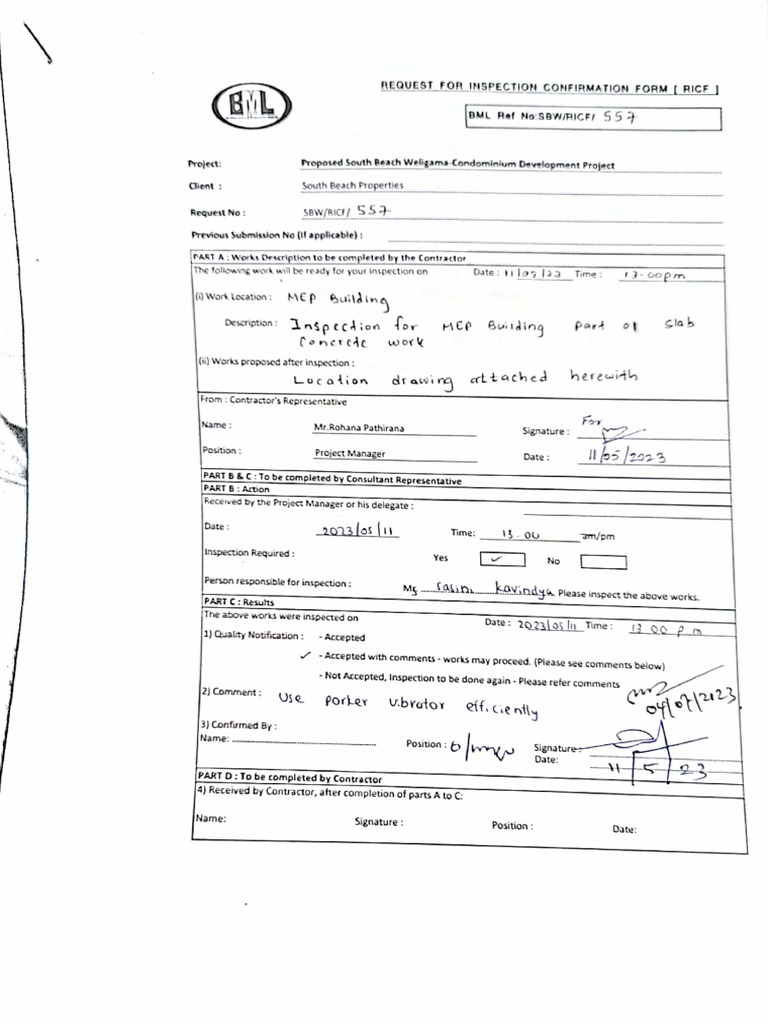 REQUEST FOR INSPECTION CONFIRMATION FORM [ RICF ]
BML
BML Ref No:SBW/RICF/ 557
Project: Proposed South Beach Weligama-Condominium Development Project
Client : South Beach Properties
Request No : SBW/RICF/ 557
Previous Submission No (if applicable) :
PART A : Works Description to be completed by the Contractor
The following work will be ready for your inspection on Date : 11/05/23 Time : 13.00pm
(i) Work Location : MEP Building
Description : Inspection for MEP Building part of slab
concrete work
(ii) Works proposed after inspection :
Location drawing attached herewith
From : Contractor's Representative
For
Name : Mr.Rohana Pathirana Signature :
Position : Project Manager Date : 11/05/2023
PART B & C : To be completed by Consultant Representative
PART B : Action
Received by the Project Manager or his delegate :
Date : 2023/05/11 Time: 13.00 am/pm
Inspection Required : Yes ✓ No
Person responsible for inspection : Ms Sasini Kavindya Please inspect the above works.
PART C : Results
The above works were inspected on Date : 2023/05/11 Time : 13.00 p.m
1) Quality Notification : - Accepted
✓ - Accepted with comments - works may proceed. (Please see comments below)
- Not Accepted, Inspection to be done again - Please refer comments
04/07/2023
2) Comment : Use porker vibrator efficiently
3) Confirmed By :
Name: Position : Signature:
Date: 11/5/23
PART D : To be completed by Contractor
4) Received by Contractor, after completion of parts A to C:
Name: Signature : Position : Date: